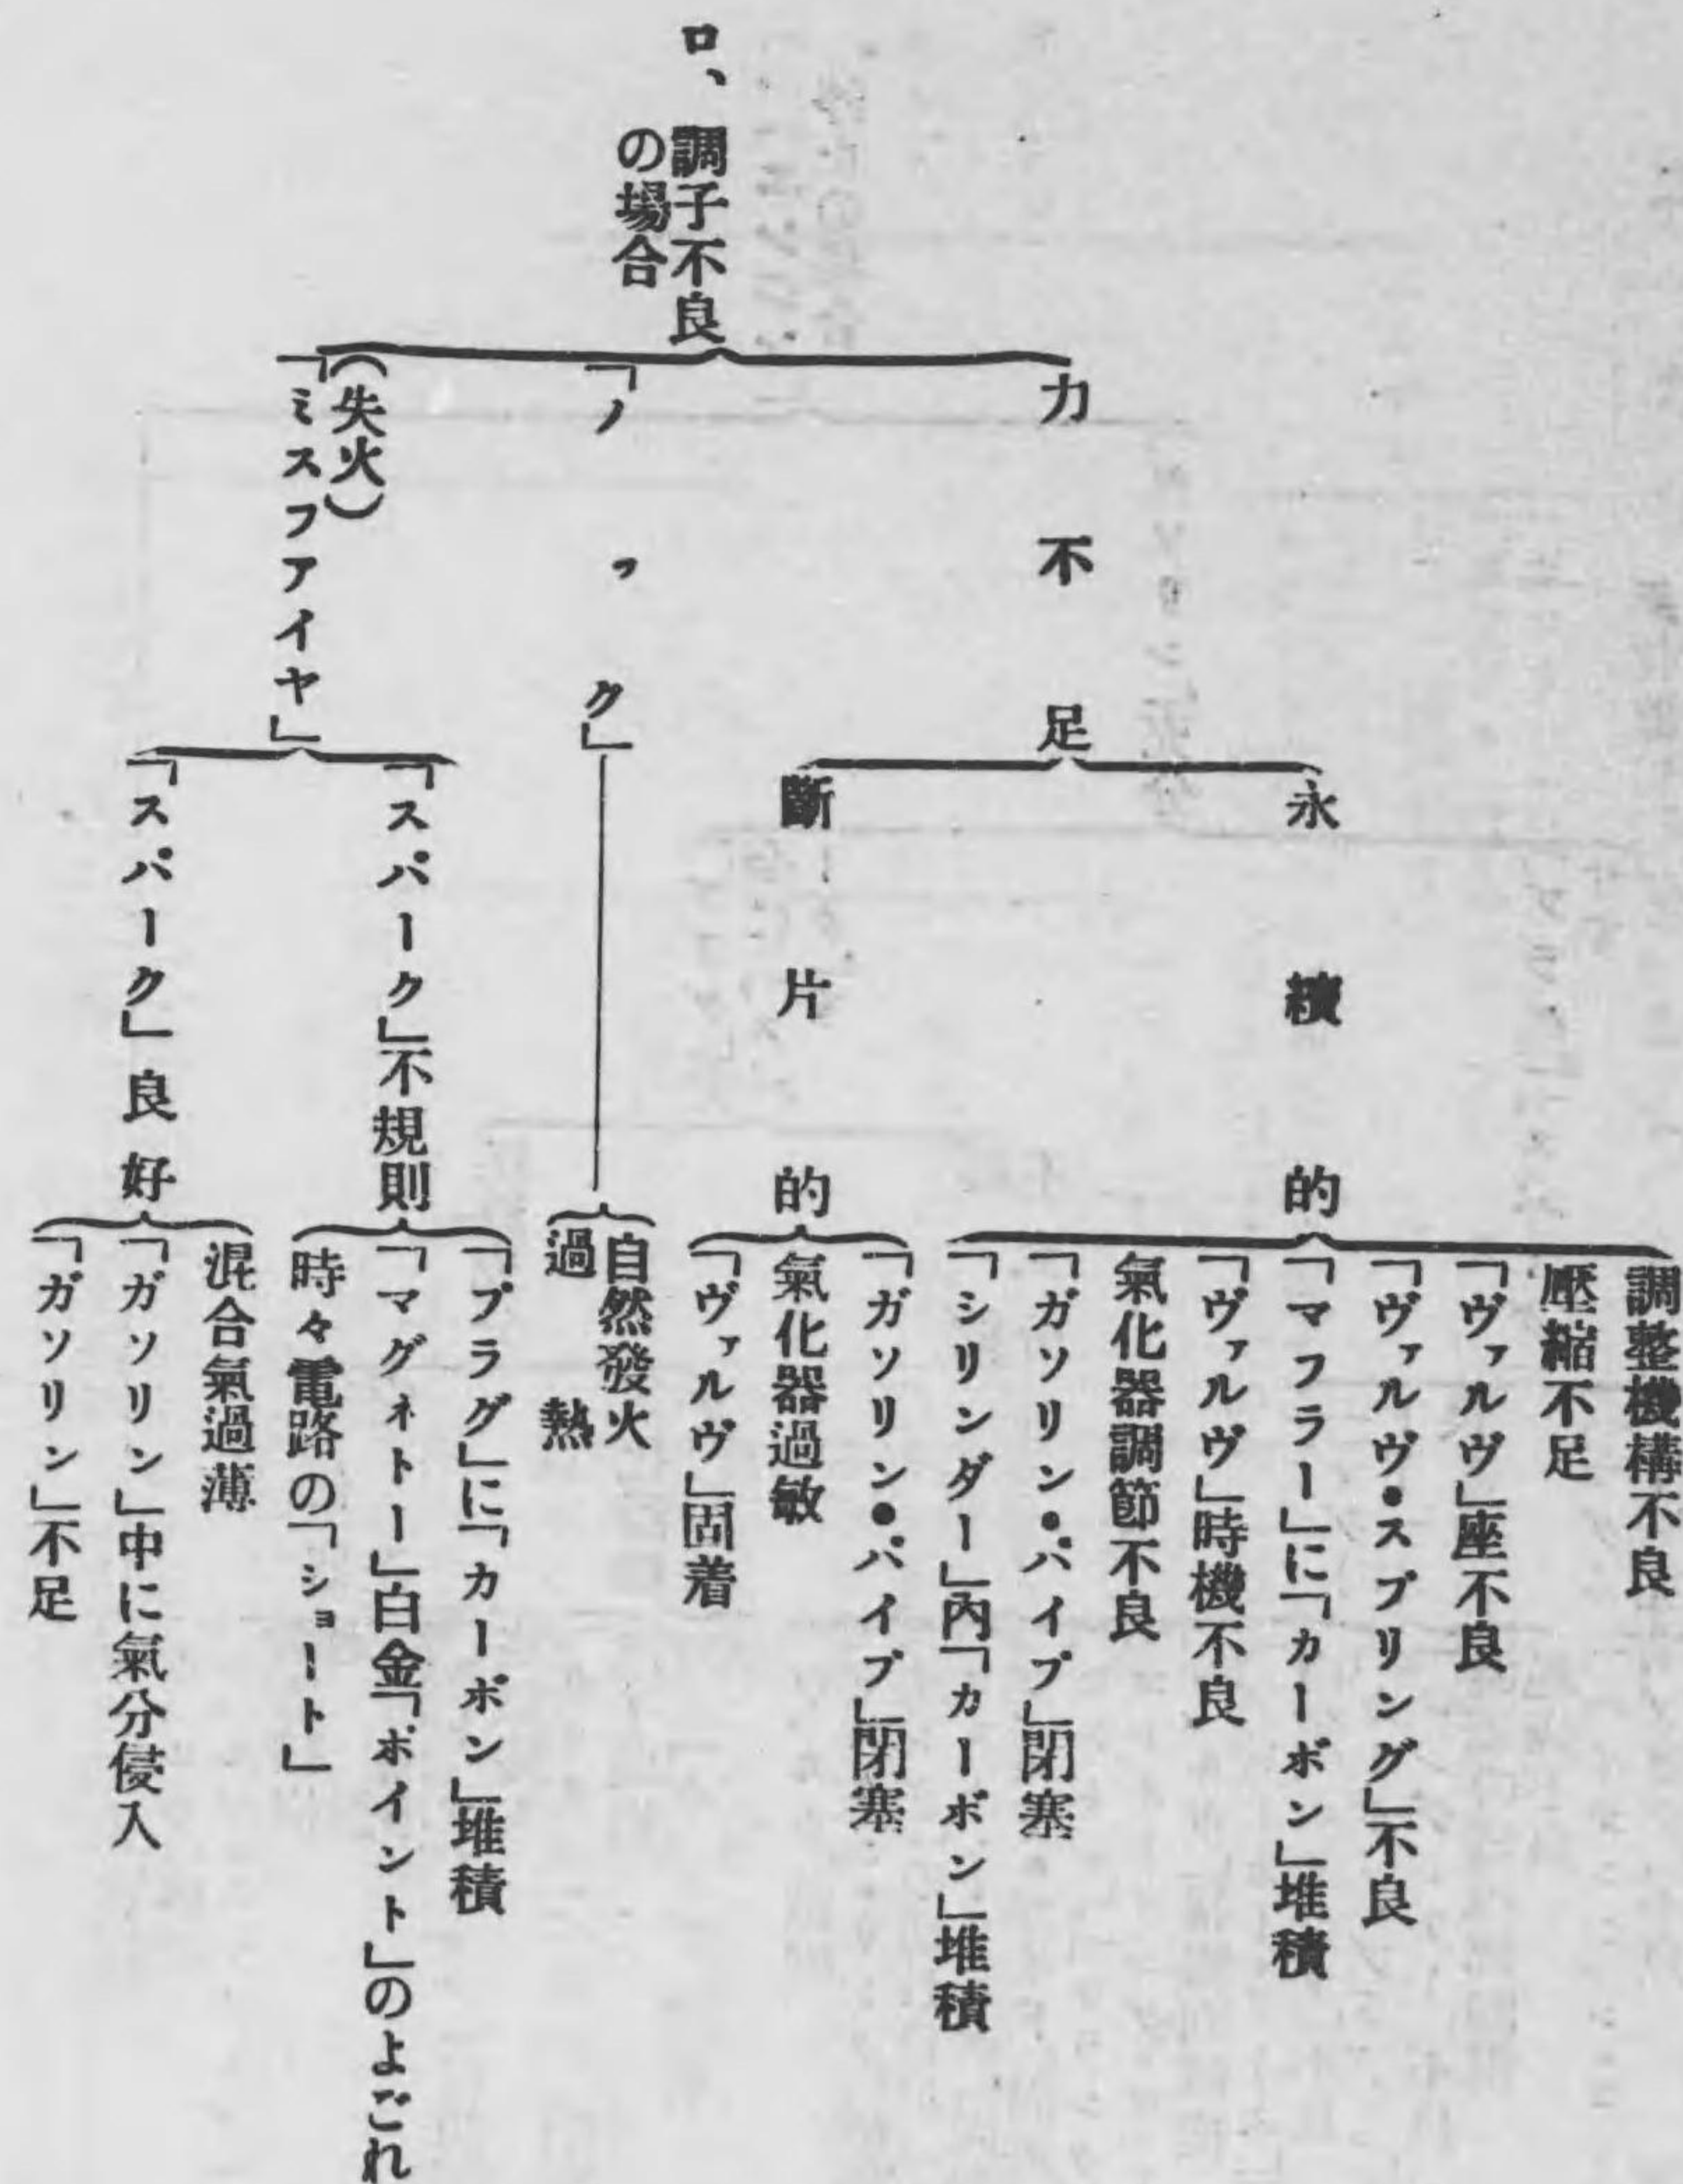 ロ、調子不良
の場合
力不足
永續的
調整機構不良
壓縮不足
「ヴァルヴ」座不良
「ヴァルヴ・スプリング」不良
「マフラー」に「カーボン」堆積
「ヴァルヴ」時機不良
氣化器調節不良
「ガソリン・パイプ」閉塞
「シリンダー」內「カーボン」堆積
斷片的
「ガソリン・パイプ」閉塞
氣化器過敏
「ヴァルヴ」固着
「ノック」
自然發火
過熱
(失火)
「ミスファイヤ」
「スパーク」不規則
「プラグ」に「カーボン」堆積
「マグネトー」白金「ポイント」のよごれ
時々電路の「ショート」
「スパーク」良好
混合氣過薄
「ガソリン」中に氣分侵入
「ガソリン」不足